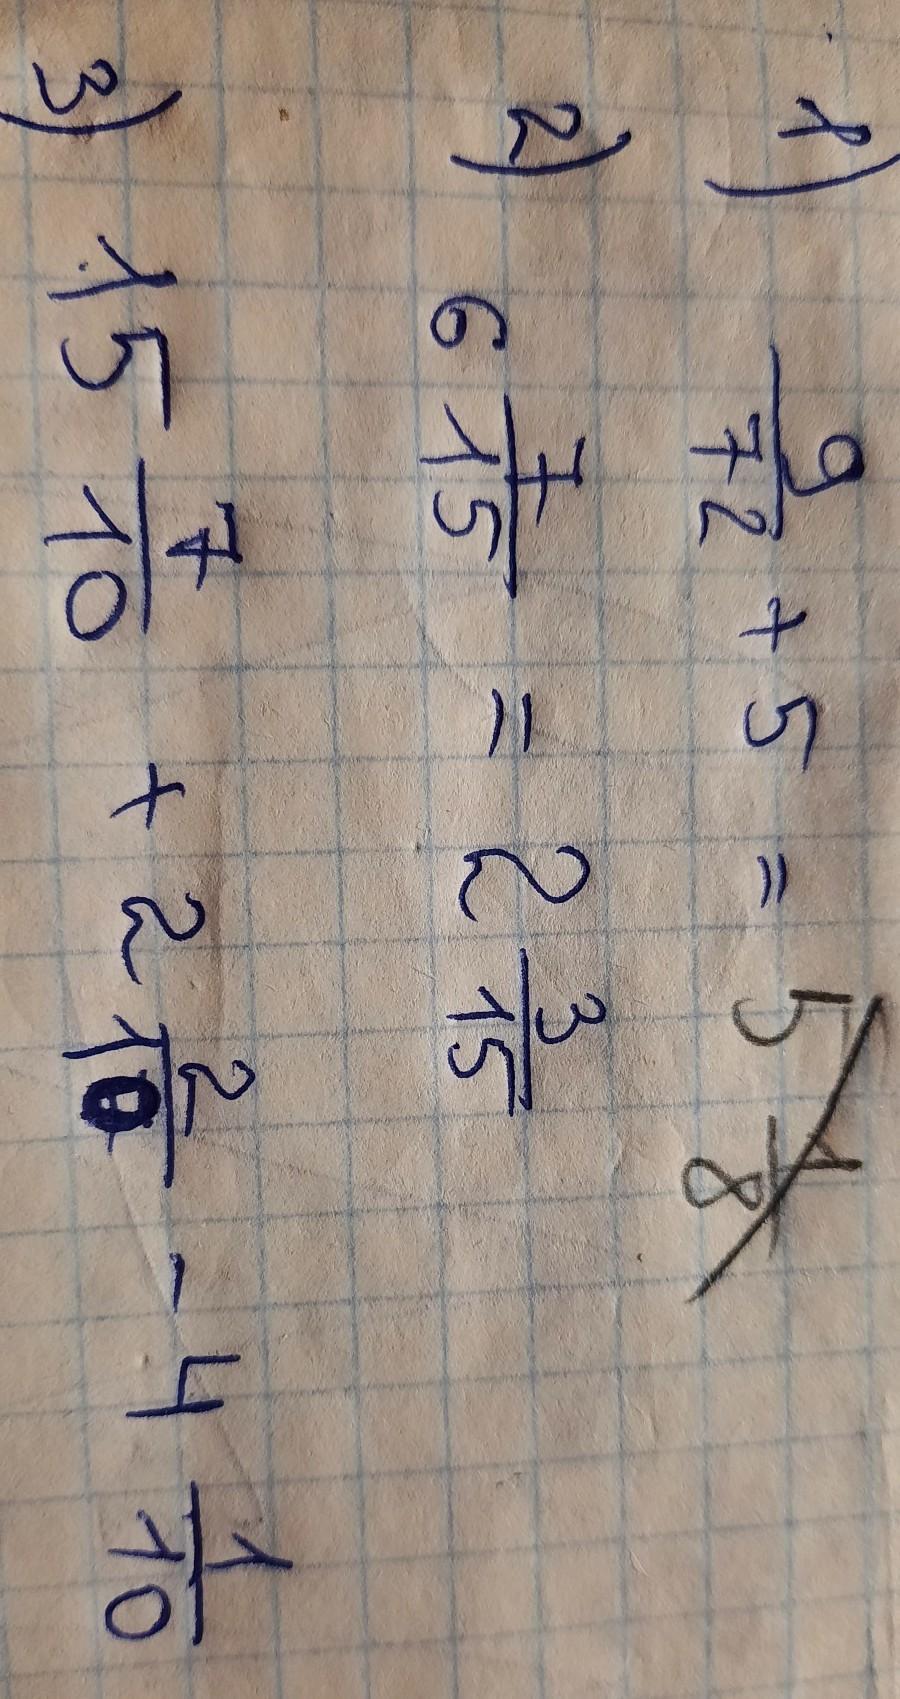 1) 9/72 + 5 = 5 1/8
2) 6 7/15 = 2 3/15
3) 15 7/10 + 2 2/10 - 4 1/10